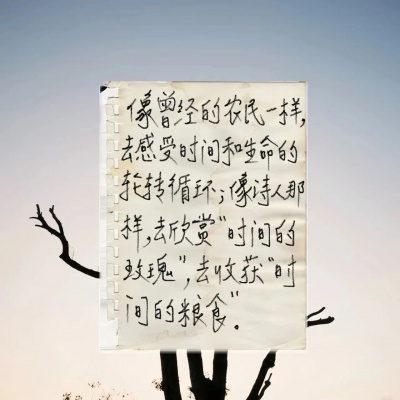 像曾经的农民一样,
去感受时间和生命的
轮转循环;像诗人那
样,去欣赏"时间的
玫瑰",去收获"时
间的粮食"。